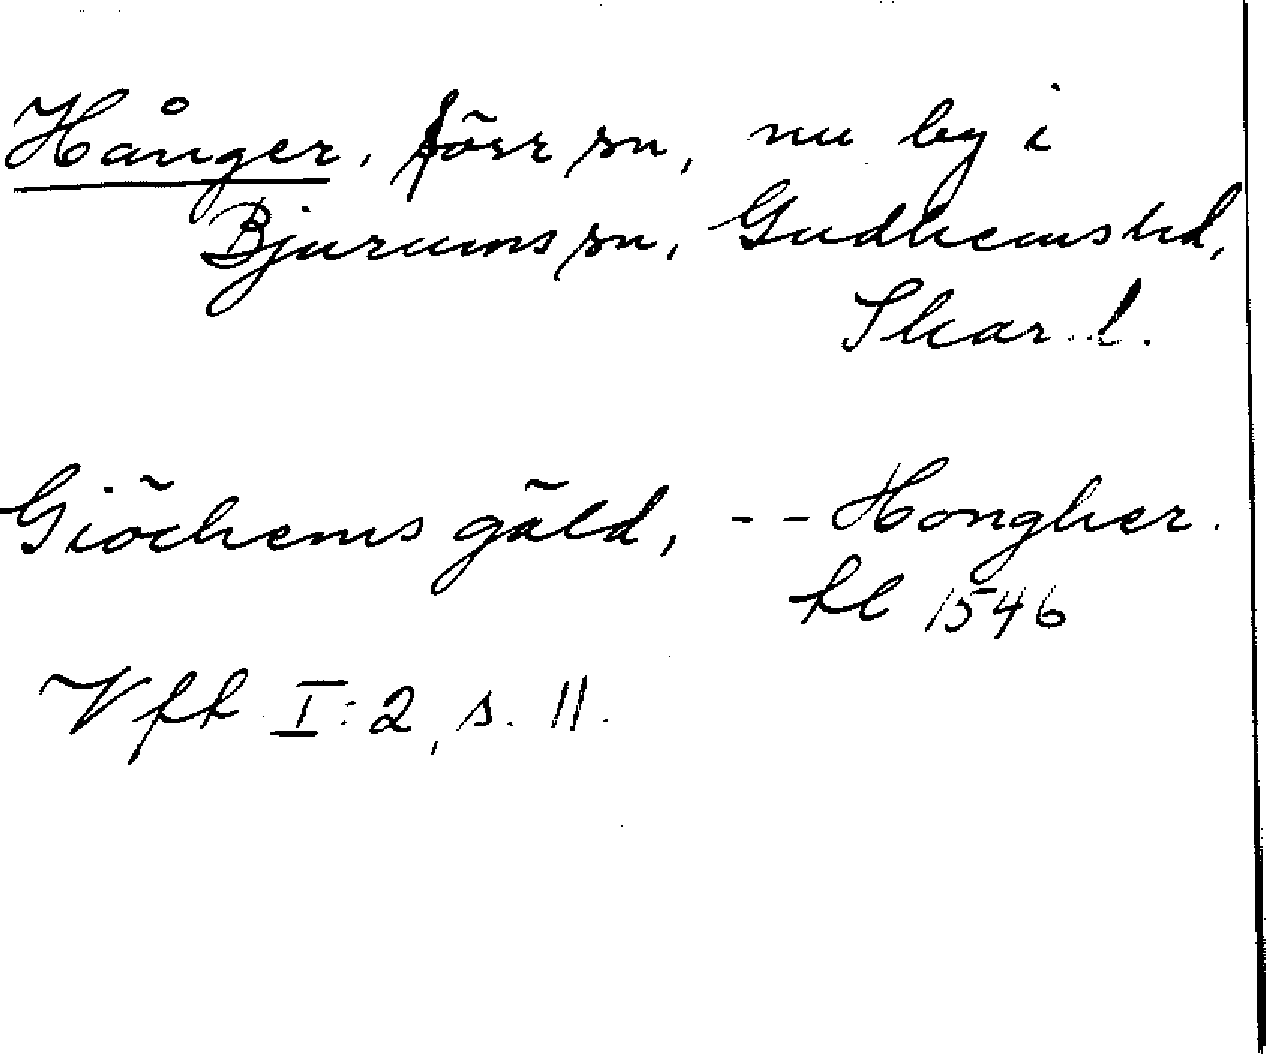 Hånger, förr sn, nu by i
Bjurums sn, Gudhems hd,
Skar. l.
Giöchems gäld, -- Hongher.
fl 1546
Vff I:2, s. 11.